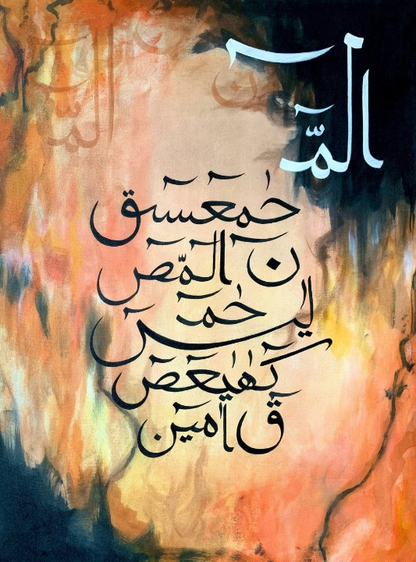 الٓمّٓ
حٰمٓعٓسٓقٓ
نٓ الٓمّٓصٓ
حٰمٓ
يٰسٓ
كٓهٰيٰعٓصٓ
قٓ امین